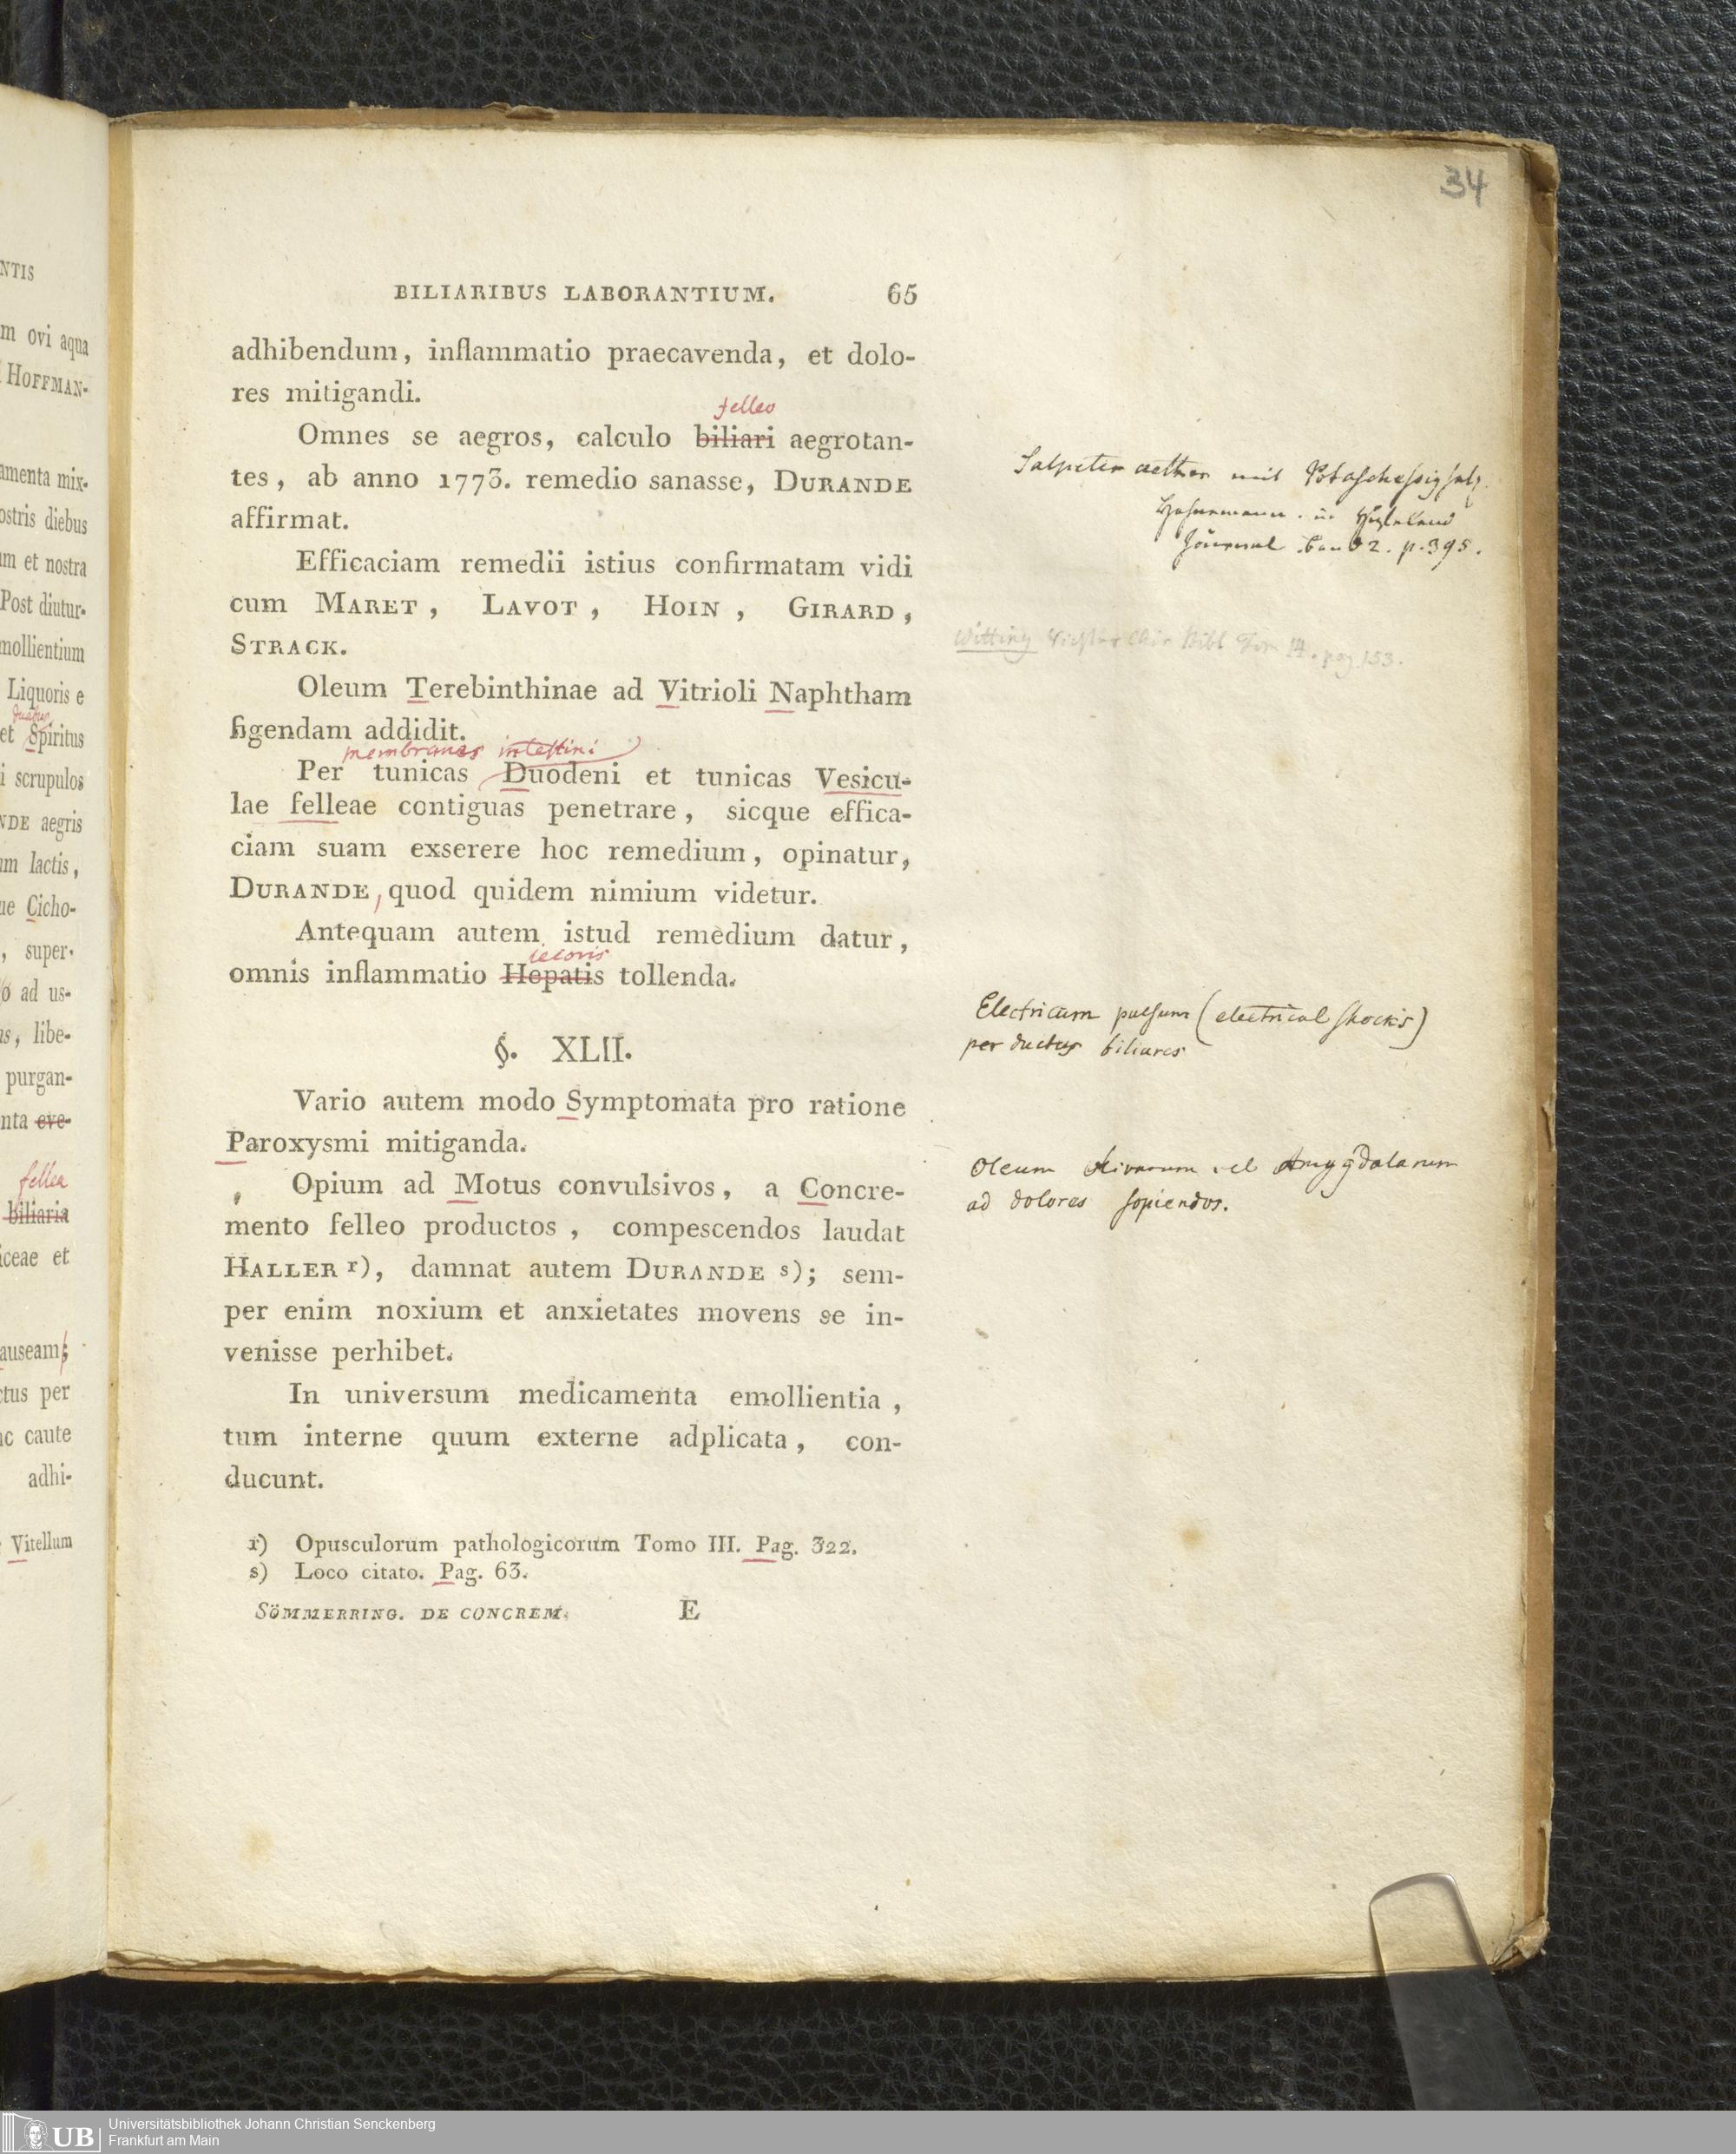 NTIS
m ovi aqua
HOFFMAN-
amenta mix-
ostris diebus
um et nostra
Post diutur-
mollientium
Liquoris e
et Spiritus
i scrupulos
NDE aegris
um lactis,
ue Cicho-
, super-
o ad us-
us, libe-
purgan-
nta eve-
fellea
biliaria
iceae et
auseam;
ctus per
nc caute
adhi-
Vitellum
34
BILIARIBUS LABORANTIUM. 65
adhibendum, inflammatio praecavenda, et dolo-
res mitigandi.
felleo
Omnes se aegros, calculo biliari aegrotan-
tes, ab anno 1773. remedio sanasse, DURANDE
affirmat.
Efficaciam remedii istius confirmatam vidi
cum MARET, LAVOT, HOIN, GIRARD,
STRACK.
Oleum Terebinthinae ad Vitrioli Naphtham
figendam addidit.
membranas intestini
Per tunicas Duodeni et tunicas Vesicu-
lae felleae contiguas penetrare, sicque effica-
ciam suam exserere hoc remedium, opinatur,
DURANDE, quod quidem nimium videtur.
Antequam autem istud remedium datur,
iecoris
omnis inflammatio Hepatis tollenda.
§. XLII.
Vario autem modo Symptomata pro ratione
Paroxysmi mitiganda.
Opium ad Motus convulsivos, a Concre-
mento felleo productos, compescendos laudat
HALLER r), damnat autem DURANDE s); sem-
per enim noxium et anxietates movens se in-
venisse perhibet.
In universum medicamenta emollientia,
tum interne quum externe adplicata, con-
ducunt.
r) Opusculorum pathologicorum Tomo III. Pag. 322.
s) Loco citato. Pag. 63.
SÖMMERRING. DE CONCREM. E
Salpeter aether mit
in Hufeland
Journal Band 2. p. 395.
Witting Richter Chir Bibl Tom 14. pag 153.
Electricum pulsum (electrical shocks)
per ductus biliares
Oleum olivarum vel Amygdalarum
ad dolores sopiendos.
UB
Universitätsbibliothek Johann Christian Senckenberg
Frankfurt am Main